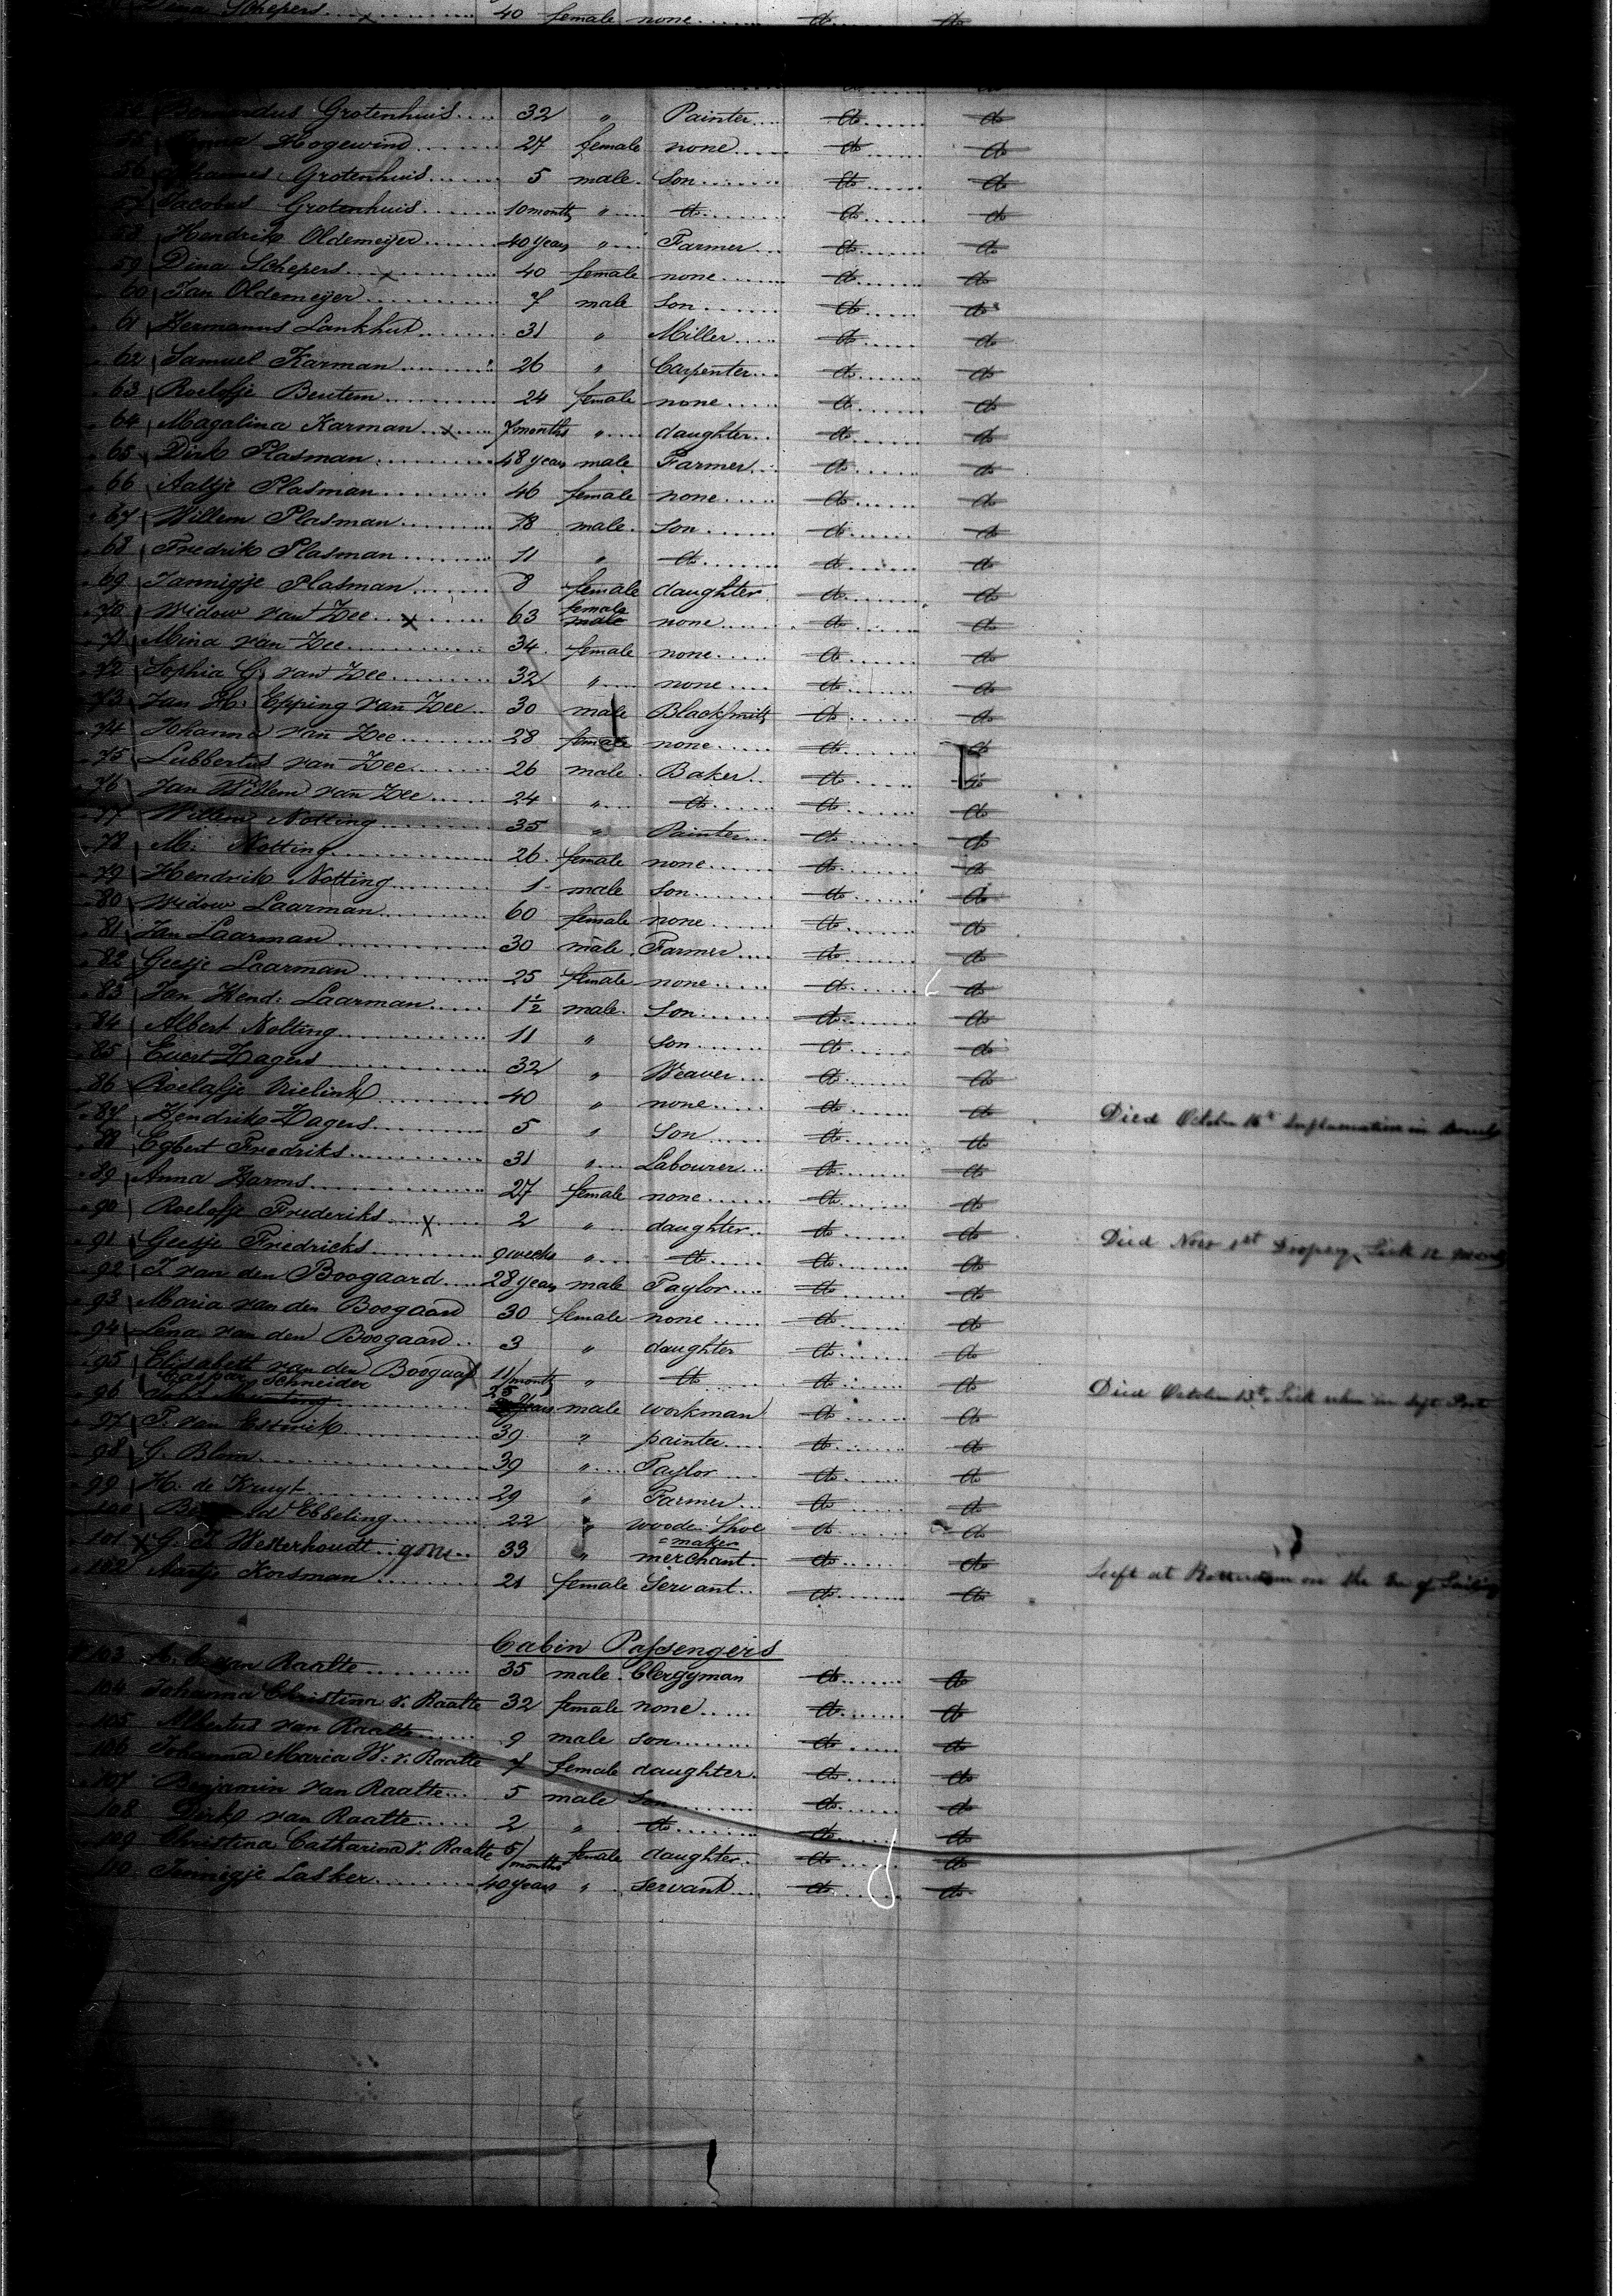 Schepers 40 female none do do
54 Bernardus Grotenhuis 32 " Painter do do
55 Hogewind 27 female none do do
56 Johannes Grotenhuis 5 male Son do do
57 Jacobus Grotenhuis 10 months " do do do
58 Hendrik Oldemeijer 40 years " Farmer do do
59 Dina Schepers x 40 female none do do
60 Jan Oldemeijer 7 male son do do
61 Hermannus Lankhut 31 " Miller do do
62 Samuel Karman 26 " Carpenter do do
63 Roelofje Beutem 24 female none do do
64 Magalina Karman x 7 months " daughter do do
65 Dirk Plasman 48 years male Farmer do do
66 Aaltje Plasman 46 female none do do
67 Willem Plasman 18 male son do do
68 Fredrik Plasman 11 " do do do
69 Jannigje Plasman 8 female daughter do do
70 Widow van Zee x 63 female male none do do
71 Mina van Zee 34 female none do do
72 Sophia G. van Zee 32 " none do do
73 Jan H. Epping van Zee 30 male Blacksmith do do
74 Johanna van Zee 28 female none do do
75 Lubbertus van Zee 26 male Baker do do
76 Jan Willem van Zee 24 " do do do
77 Willem Notting 35 " Painter do do
78 M. Notting 26 female none do do
79 Hendrik Notting 1 male son do do
80 Widow Laarman 60 female none do do
81 Jan Laarman 30 male Farmer do do
82 Geesje Laarman 25 female none do do
83 Jan Hend. Laarman 1½ male Son do do
84 Albert Nolting 11 " son do do
85 Evert Zagers 32 " Weaver do do
86 Roelofje 40 " none do do
87 Hendrik Zagers 5 " Son do do Died October 16th Inflammation in
88 Egbert Fredriks 31 " Labourer do do
89 Anna Harms 27 female none do do
90 Roelofje Frederiks x 2 " daughter do do
91 Geesje Fredricks 9 weeks " do do do Died Nov 1st Dropsy Sick 12
92 T. van den Boogaard 28 years male Taylor do do
93 Maria van den Boogaard 30 female none do do
94 Lena van den Boogaard 3 " daughter do do
95 Elisabeth van den Boogaard 11/months " do do do
Caspar Schneider 25
96 years male workman do do Died October 13th Sick when in left Port
97 P. van Estwik 39 " painter do do
98 G. Blom 39 " Taylor do do
99 H. de Kruyt 29 " Farmer do do
100 Ebbeling 22 " wooden Shoe do do
=maker
101 x G. J. Westerhoudt gone 33 " merchant do do
102 Aartje Korsman 21 female Servant do do Left at Rotterdam on the of Sailing
Cabin Passengers
103 A. C. van Raalte 35 male Clergyman do do
104 Johanna Christina v. Raalte 32 female none do do
105 Albertus van Raalte 9 male son do do
106 Johanna Maria W. v. Raalte 7 female daughter do do
107 Benjamin van Raalte 5 male Son do do
108 Dirk van Raalte 2 " do do do
109 Christina Catharina v. Raalte 5/months female daughter do do
110 Tennegje Lasker 40 years " Servant do do